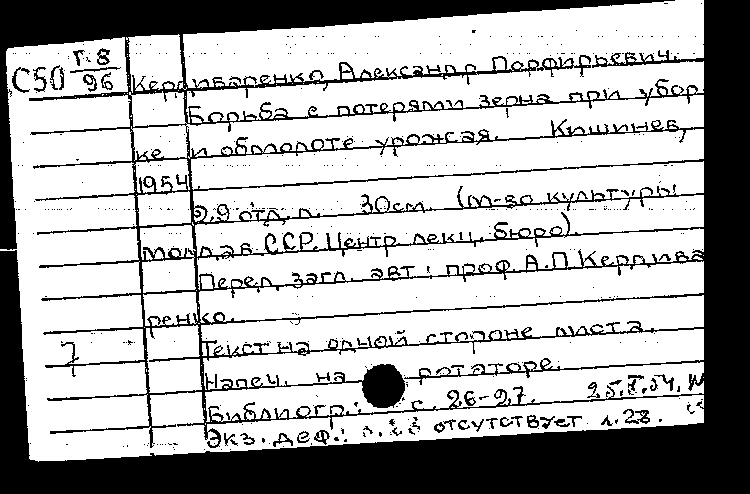 С50 Г.8/96 Кердиваренко, Александр Порфирьевич.
Борьба с потерями зерна при убор
ке и обмолоте урожая. Кишинев,
1954.
29 отд. л. 30см. (М-во культуры
Молдав. ССР. Центр. лекц. бюро).
Перед загл. авт.: проф. А.П. Кердива
ренко.
7 Текст на одной стороне листа.
Напеч. на ротаторе.
Библиогр.: с. 26-27. 25.V.54.
Экз. деф.: отсутствует л. 28.